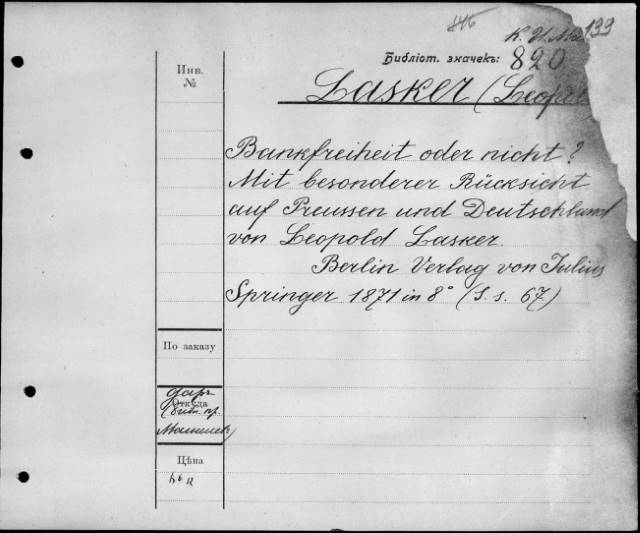 846
139
Библіот. значекъ: 820
Инв.
№
Lasker (Leopol
Bankfreiheit oder nicht?
Mit besonderer Rücksicht
auf Preussen und Deutschland
von Leopold Lasker.
Berlin Verlag von Julius
Springer 1871 in 8° (S. s. 67)
По заказу
даръ
Откуда
Цѣна